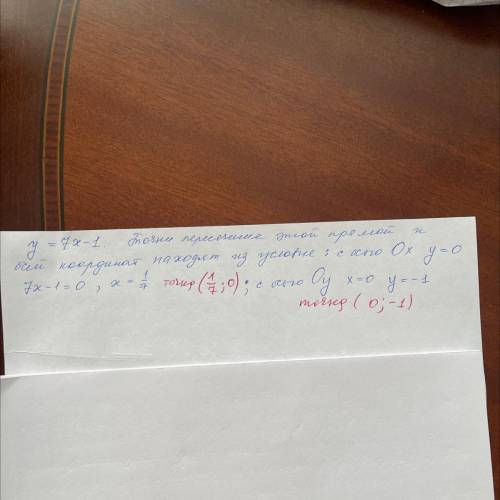 y = 7x-1. Точки пересечение этой прямой и
осей координат находят из условие: с осью Ox y=0
7x-1=0, x = 1/7 точка (1/7; 0); с осью Oy x=0 y=-1
точка ( 0; -1)